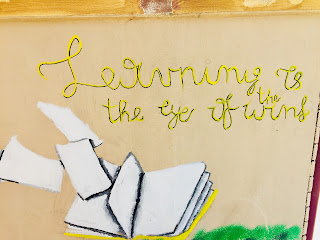 Learning is
the eye of the wind